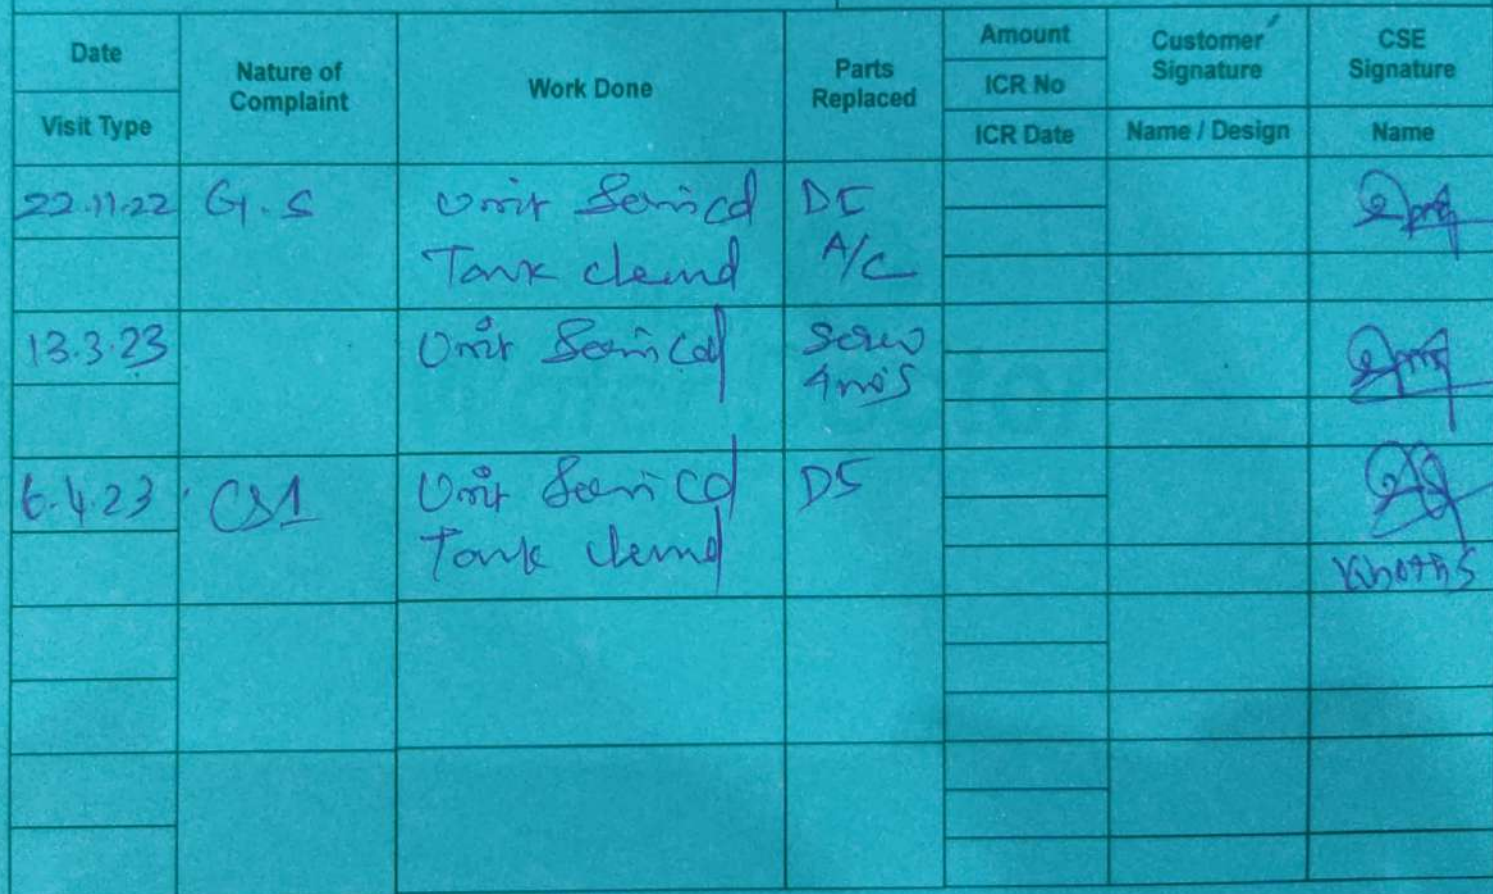 Date
Visit Type
Nature of
Complaint
Work Done
Parts
Replaced
Amount
ICR No
ICR Date
Customer
Signature
Name / Design
CSE
Signature
Name
22.11.22 G.S Unit Serviced DS
Tank cleand A/C
13.3.23 Unit Serviced Screw
4nos
6.4.23 CS1 Unit Serviced DS
Tank cleand